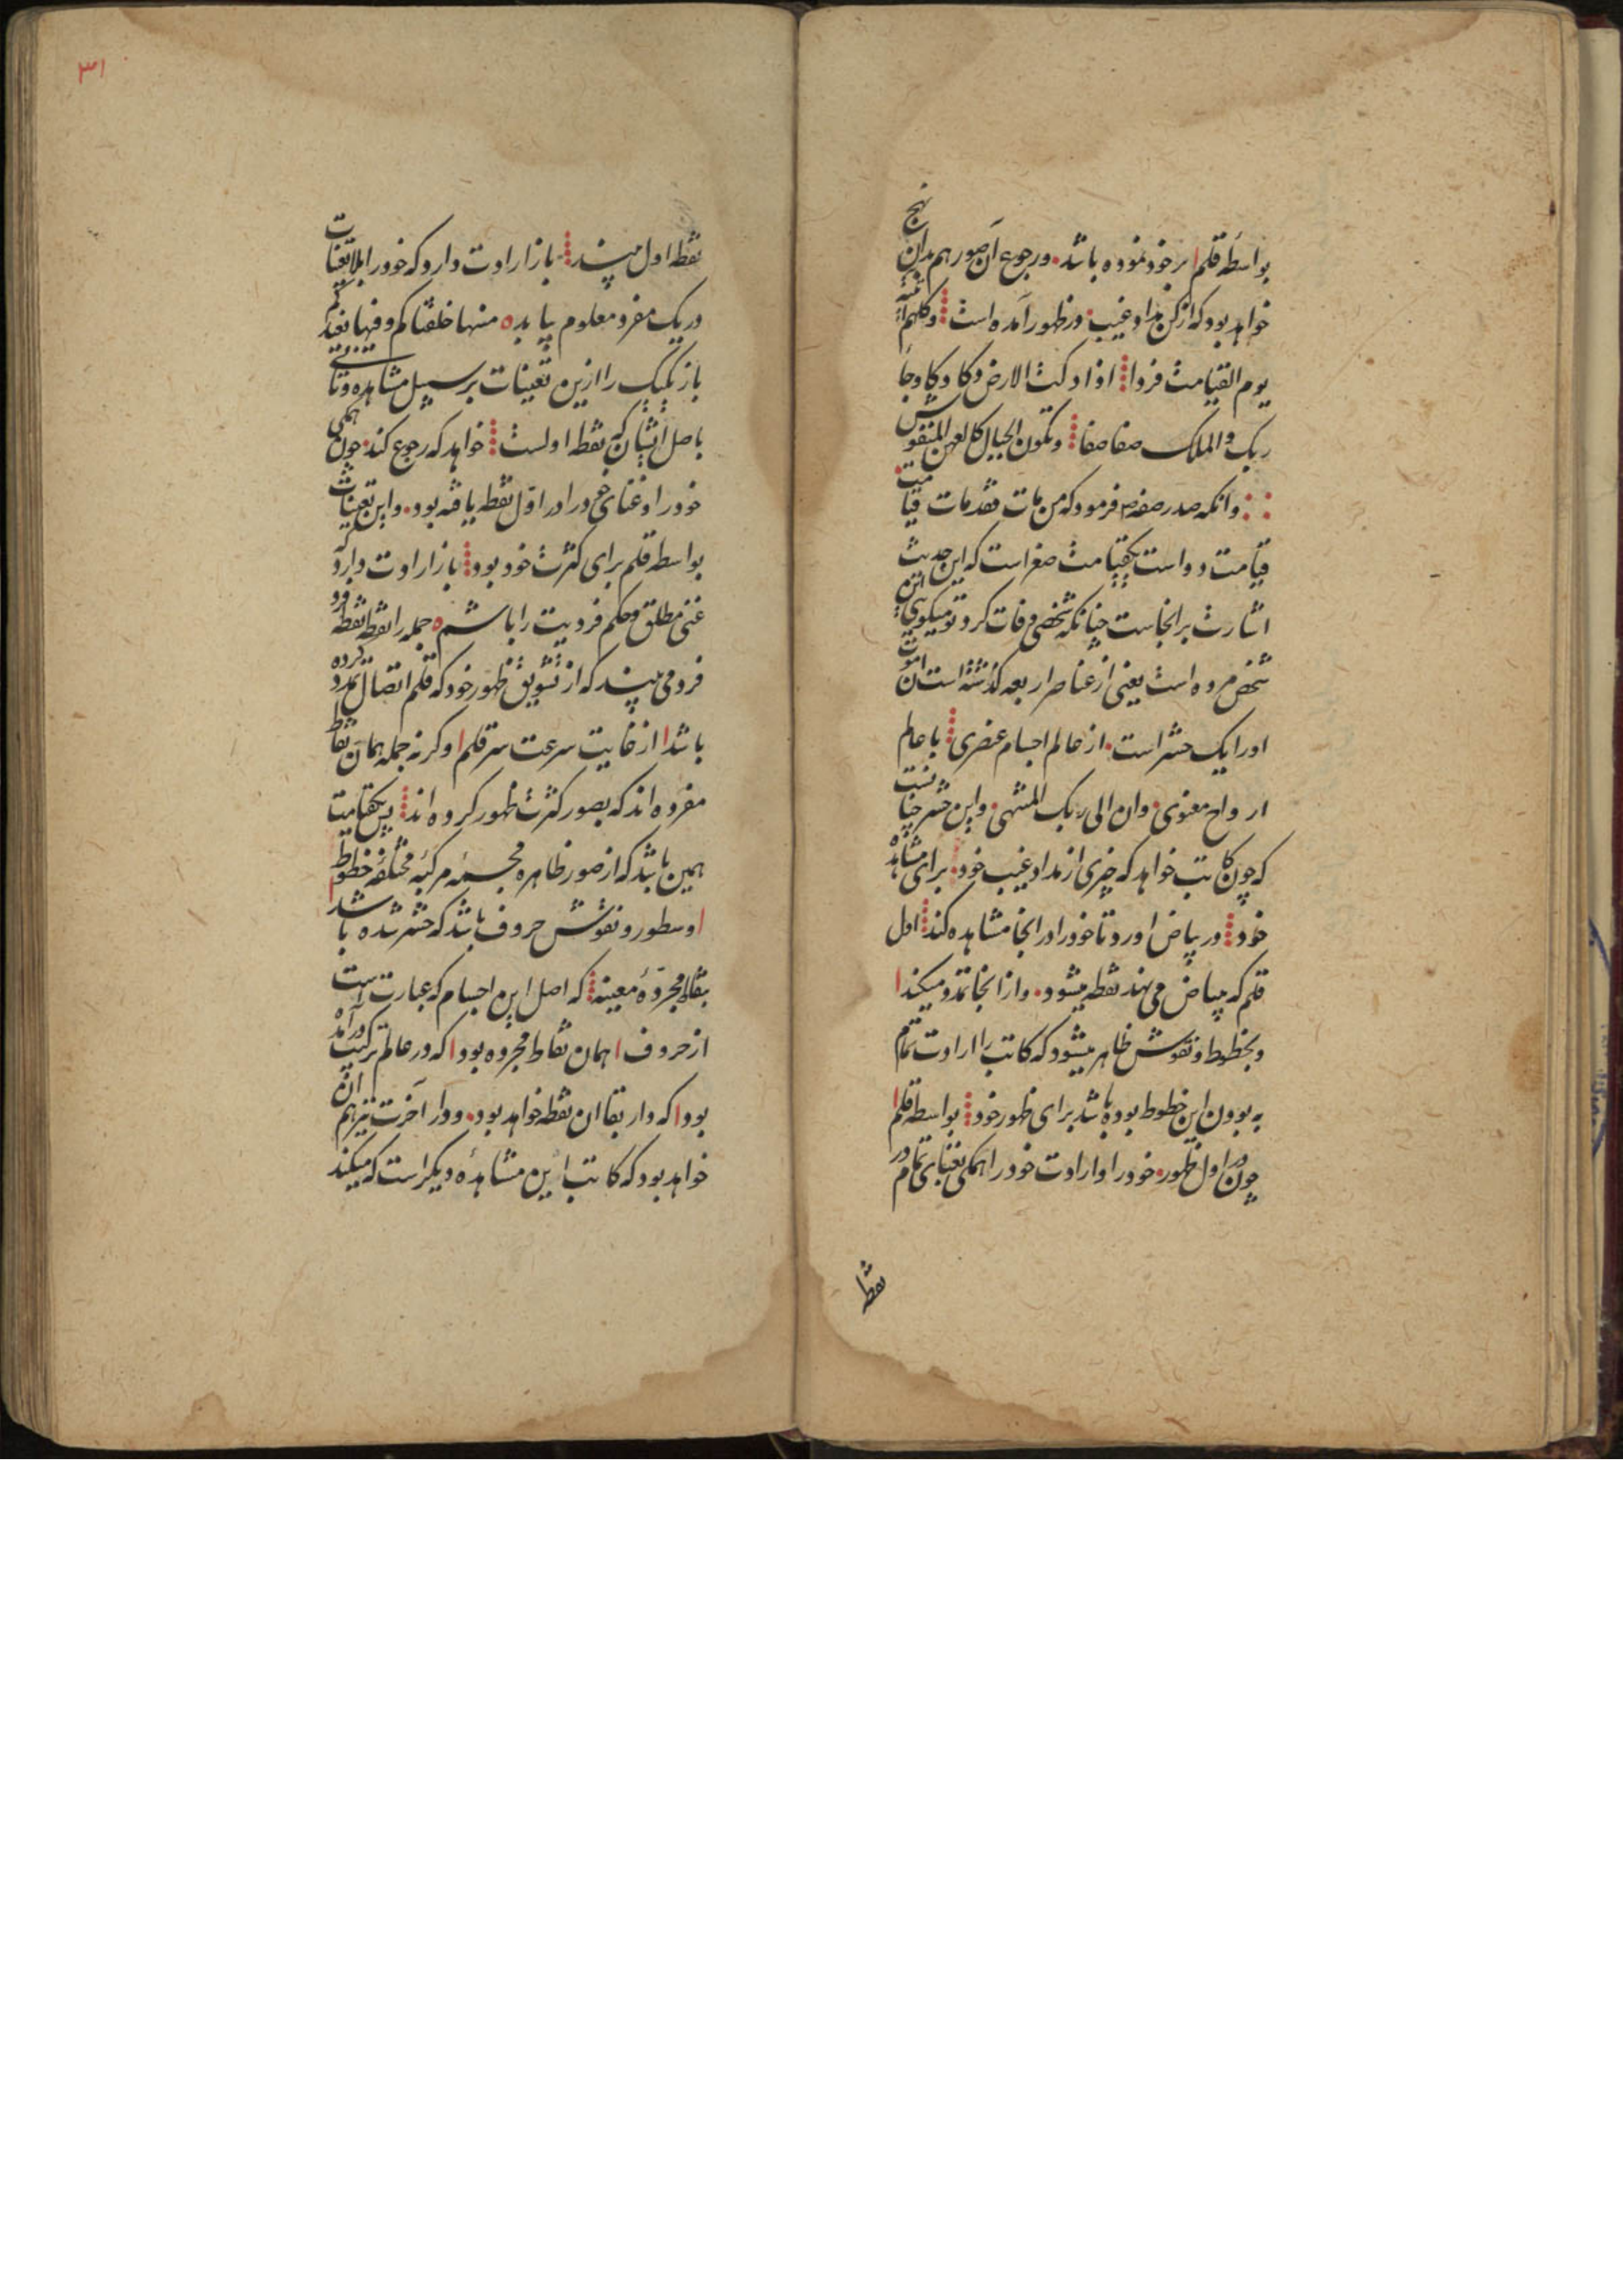 بواسطه قلم بر خود نموده باشد ورجوع آن صور هم بدان نهج
خواهد بود که از کن مداد غیب در ظهور آمده است وکلهم آتیه
یوم القیامت فردا اذا دکت الارض دکا دکا وجا
ربک والملک صفا صفا وتکون الجبال کالعهن المنفوش
وانکه صدر صفه ص فرمود که من مات فقد مات قیامت
قیامت دو است یک قیامت صغراست که این حدیث
اشارت بر انجاست چنانکه شخصی وفات کرد تو میکویی این
شخص مرده است یعنی از عناصر اربعه کذشته است
اورا یک حشر است از عالم اجسام عنصری با عالم
ارواح معنوی وان الی ربک المنتهی واین حشر چنانست
که چون کاتب خواهد که چیزی از مداد غیب خود برای مشاهده
خود در بیاض اورد تا خود را در انجا مشاهده کند اول
قلم که ببیاض می نهد نقطه میشود واز انجا تمدد میکند
وبخطوط ونقوش ظاهر میشود که کاتب را ارادت تمام
به بودن این خطوط بوده باشد برای ظهور خود بواسطه قلم
چون در اول ظهور خود را و ارادت خود را همکی بغنای تمام در
نقطه
۳۱
نقطه اول میبیند باز ارادت دارد که خود را بلا تعینات
در یک مفرد معلوم یابد منها خلقناکم وفیها نعیدکم
باز یکیک را ازین تعینات بر سبیل مشاهده وتانی
باصل ایشان که نقطه اولست خواهد که رجوع کند چون همکی
خود را وغنای خود را در اول نقطه یافته بود واین تعینات
بواسطه قلم برای کثرت خود بود باز ارادت دارد که
غنی مطلق وحکم فردیت را باشم جمله را نقطه نقطه فرد
فرد می بیند که از تشویق ظهور خود که قلم اتصال تمدد کرده
باشد از غایت سرعت سر قلم وکرنه جمله همان نقاط
مفرده اند که بصور کثرت ظهور کرده اند پس یکقیامت
همین باشد که از صور ظاهره مجسمه مرکبه مختلفه خطوط
وسطور ونقوش حروف باشد که حشر شده باشد
بنقاط مجرده معینه که اصل این اجسام که عبارت است
از حروف همان نقاط مجرده بود که در عالم ترکیب درآمده
بود که دار بقا ان نقطه خواهد بود ودار آخرت نیز هم ان
خواهد بود که کاتب این مشاهده دیکر است که میکند